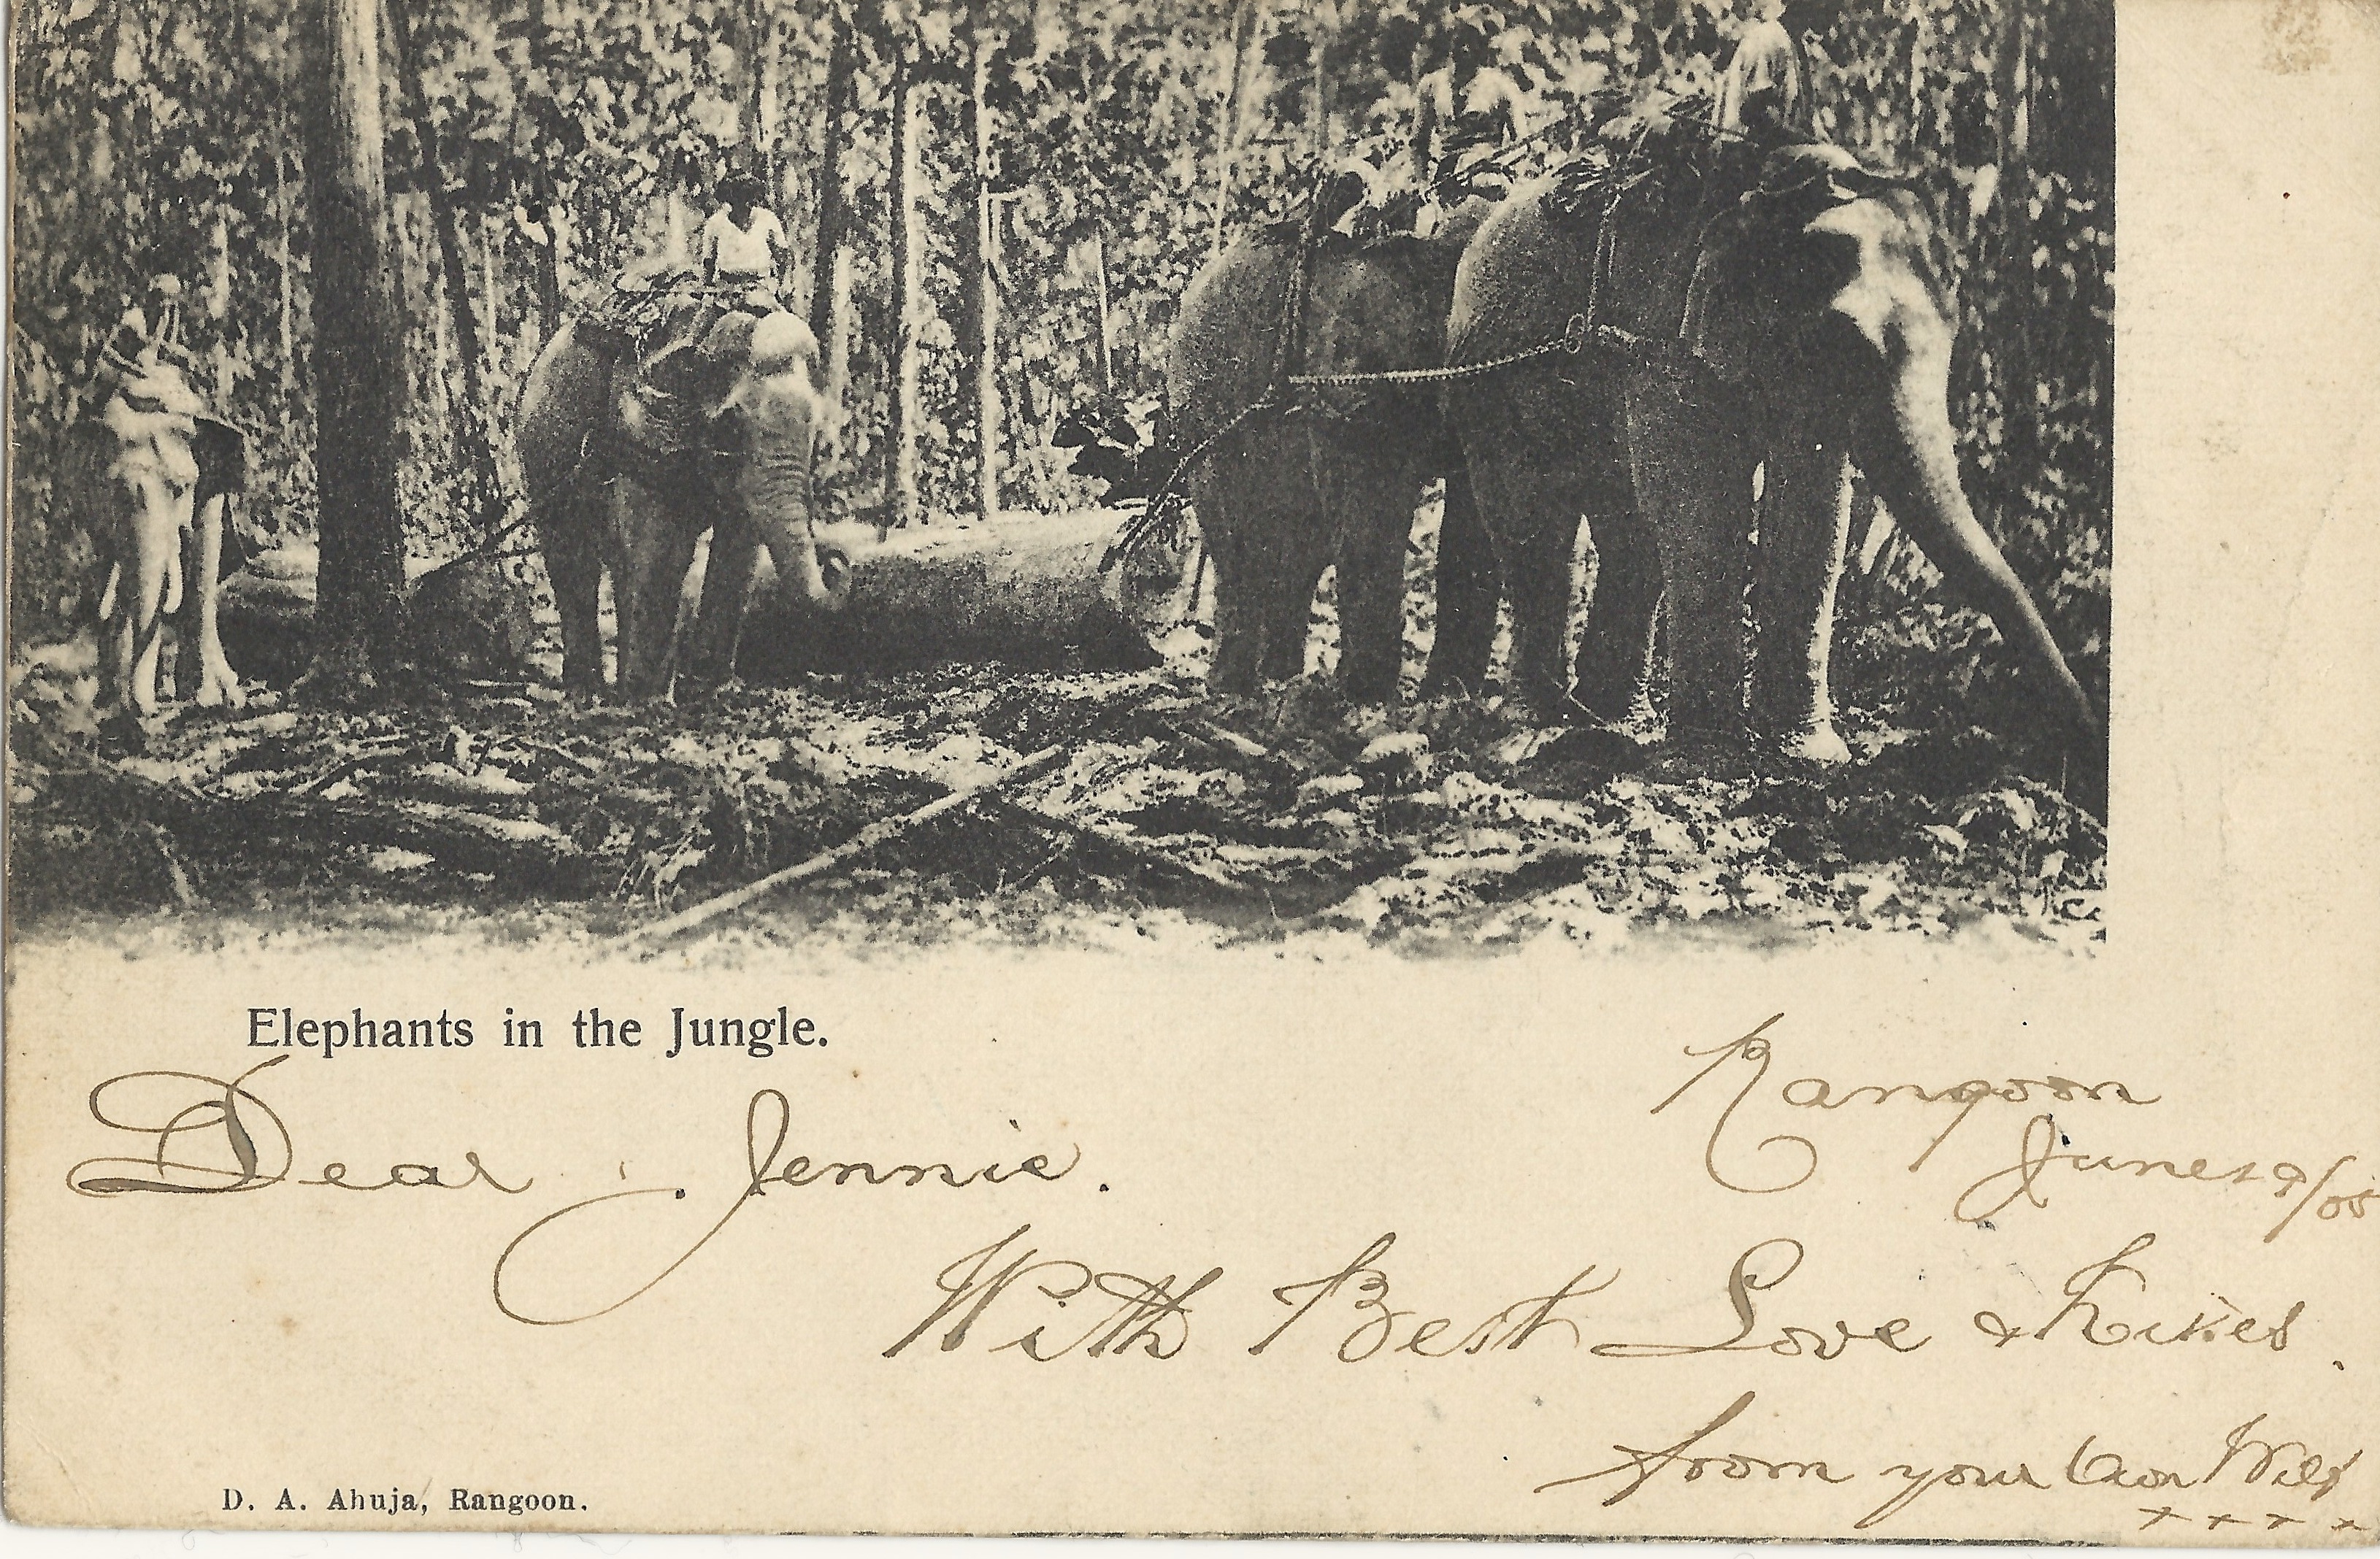 Elephants in the Jungle.
Rangoon
June 29/05
Dear Jennie.
With Best Love & Kisses.
from your Own Wilf
x x x x
D. A. Ahuja, Rangoon.